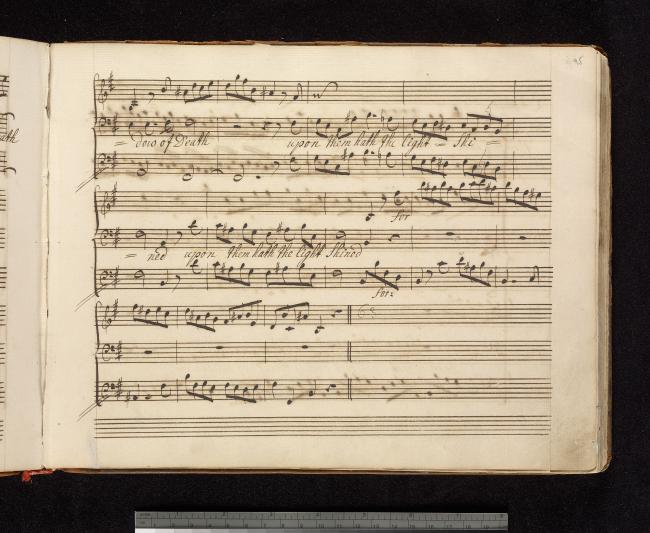 95
= dow of Death upon them hath the light = Shi =
for
= ned upon them hath the light Shined
for: